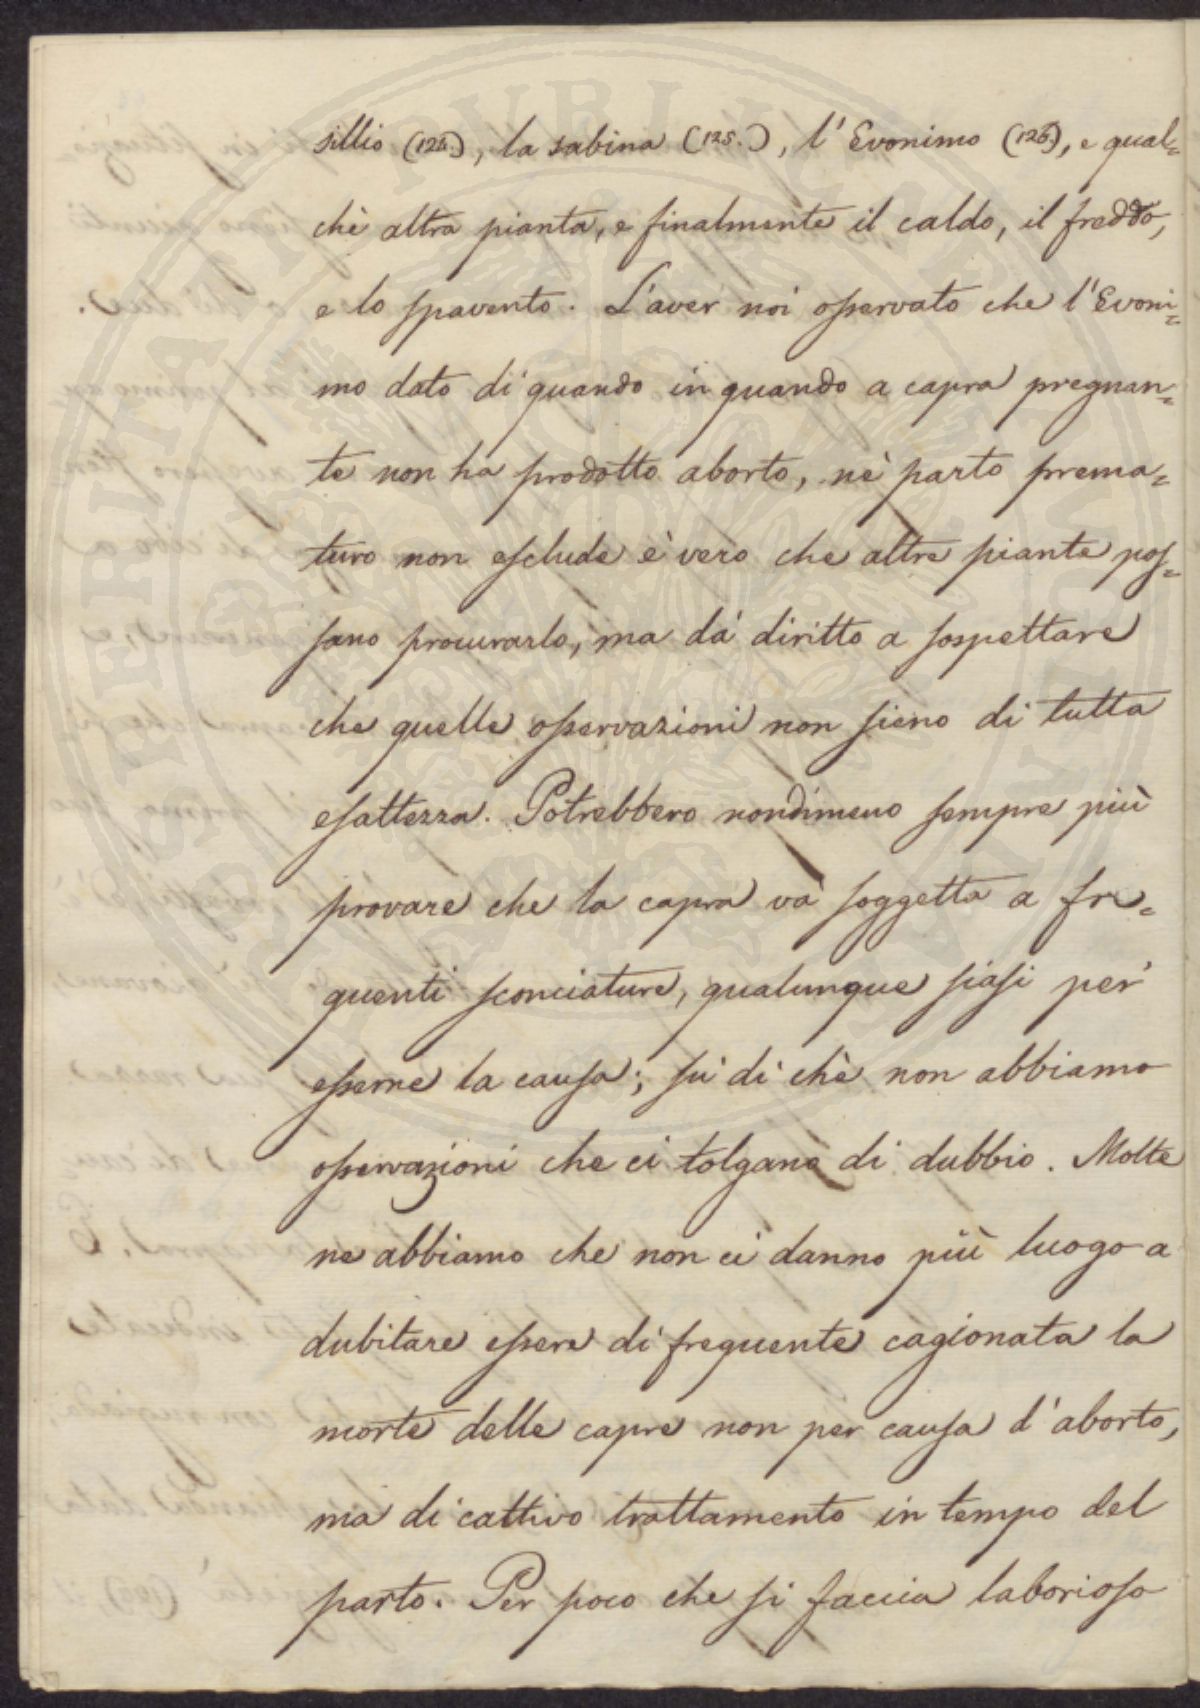 sillio (124.), la sabina (125.), l'Evonimo (126.), e qual=
chè altra pianta, e finalmente il caldo, il freddo,
e lo spavento. L'aver noi osservato che l'Evoni=
mo dato di quando in quando a capra pregnan=
te non ha prodotto aborto, nè parto prema=
turo non esclude è vero che altre piante pos=
sano procurarlo, ma dà diritto a sospettare
che quelle osservazioni non sieno di tutta
esattezza. Potrebbero nondimeno sempre più
provare che la capra và soggetta a fre=
quenti sconciature, qualunque siasi per
esserne la causa; sù di chè non abbiamo
osservazioni che ci tolgano di dubbio. Molte
ne abbiamo che non ci danno più luogo a
dubitare essere di frequente cagionata la
morte delle capre non per causa d'aborto,
ma di cattivo trattamento in tempo del
parto. Per poco che si faccia laborioso